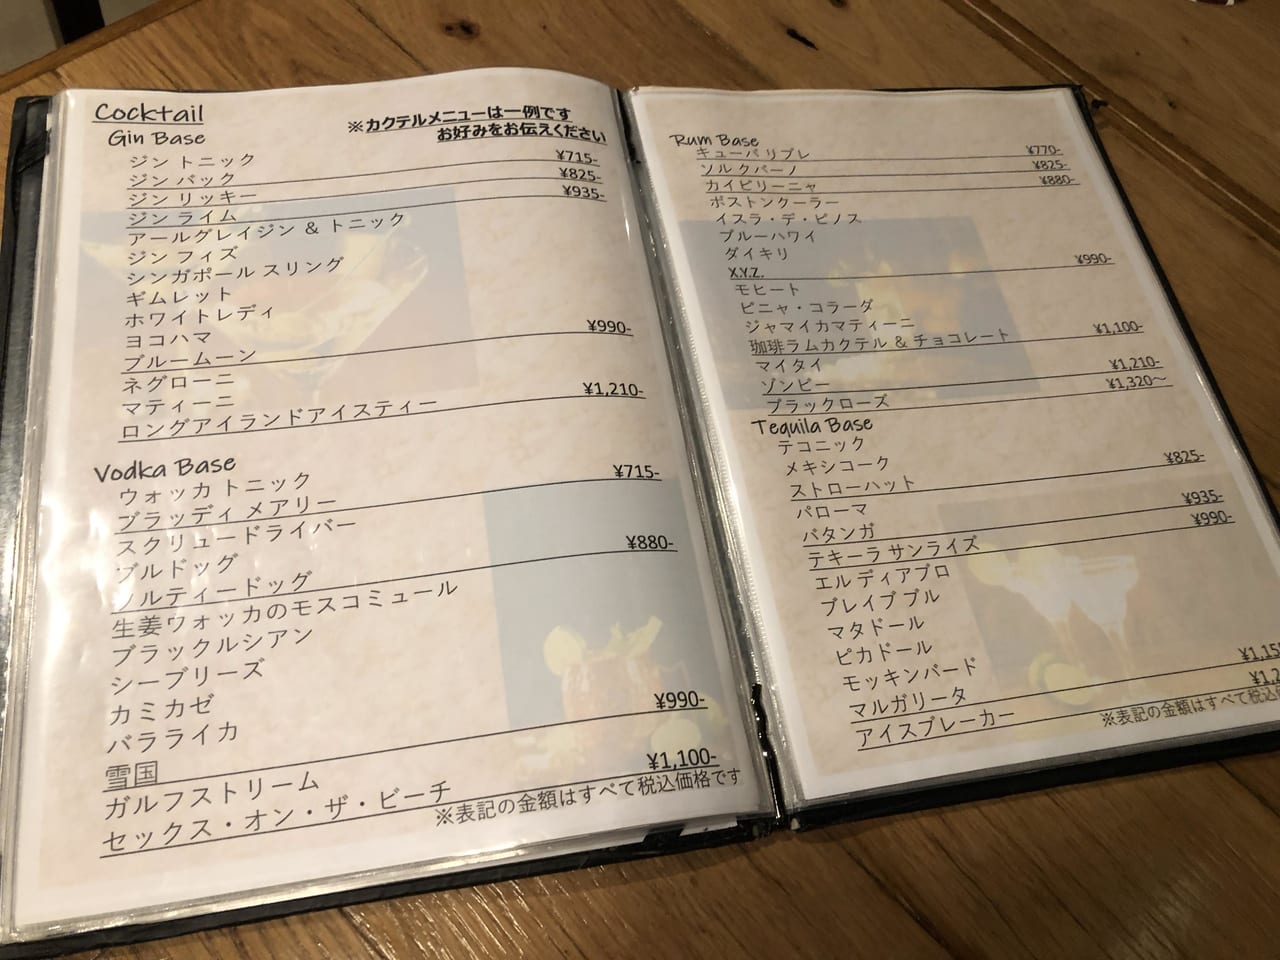 Cocktail
※カクテルメニューは一例です
お好みをお伝えください
Gin Base
ジン トニック ¥715-
ジン バック ¥825-
ジン リッキー ¥935-
ジン ライム
アールグレイジン & トニック
ジン フィズ
シンガポール スリング
ギムレット
ホワイトレディ
ヨコハマ
ブルームーン ¥990-
ネグローニ
マティーニ
ロングアイランドアイスティー ¥1,210-
Vodka Base
ウォッカ トニック
ブラッディ メアリー ¥715-
スクリュードライバー
ブルドッグ
ソルティードッグ ¥880-
生姜ウォッカのモスコミュール
ブラックルシアン
シーブリーズ
カミカゼ
バラライカ
雪国 ¥990-
ガルフストリーム
セックス・オン・ザ・ビーチ ¥1,100-
※表記の金額はすべて税込価格です
Rum Base
キューバ リブレ ¥770-
ソル クバーノ ¥825-
カイピリーニャ ¥880-
ボストンクーラー
イスラ・デ・ピノス
ブルーハワイ
ダイキリ
X.Y.Z. ¥990-
モヒート
ピニャ・コラーダ
ジャマイカマティーニ
珈琲ラムカクテル & チョコレート ¥1,100-
マイタイ
ゾンビー ¥1,210-
ブラックローズ ¥1,320～
Tequila Base
テコニック
メキシコーク
ストローハット ¥825-
パローマ
バタンガ ¥935-
テキーラ サンライズ ¥990-
エル ディアブロ
ブレイブブル
マタドール
ピカドール
モッキンバード
マルガリータ
アイスブレーカー
※表記の金額はすべて税込